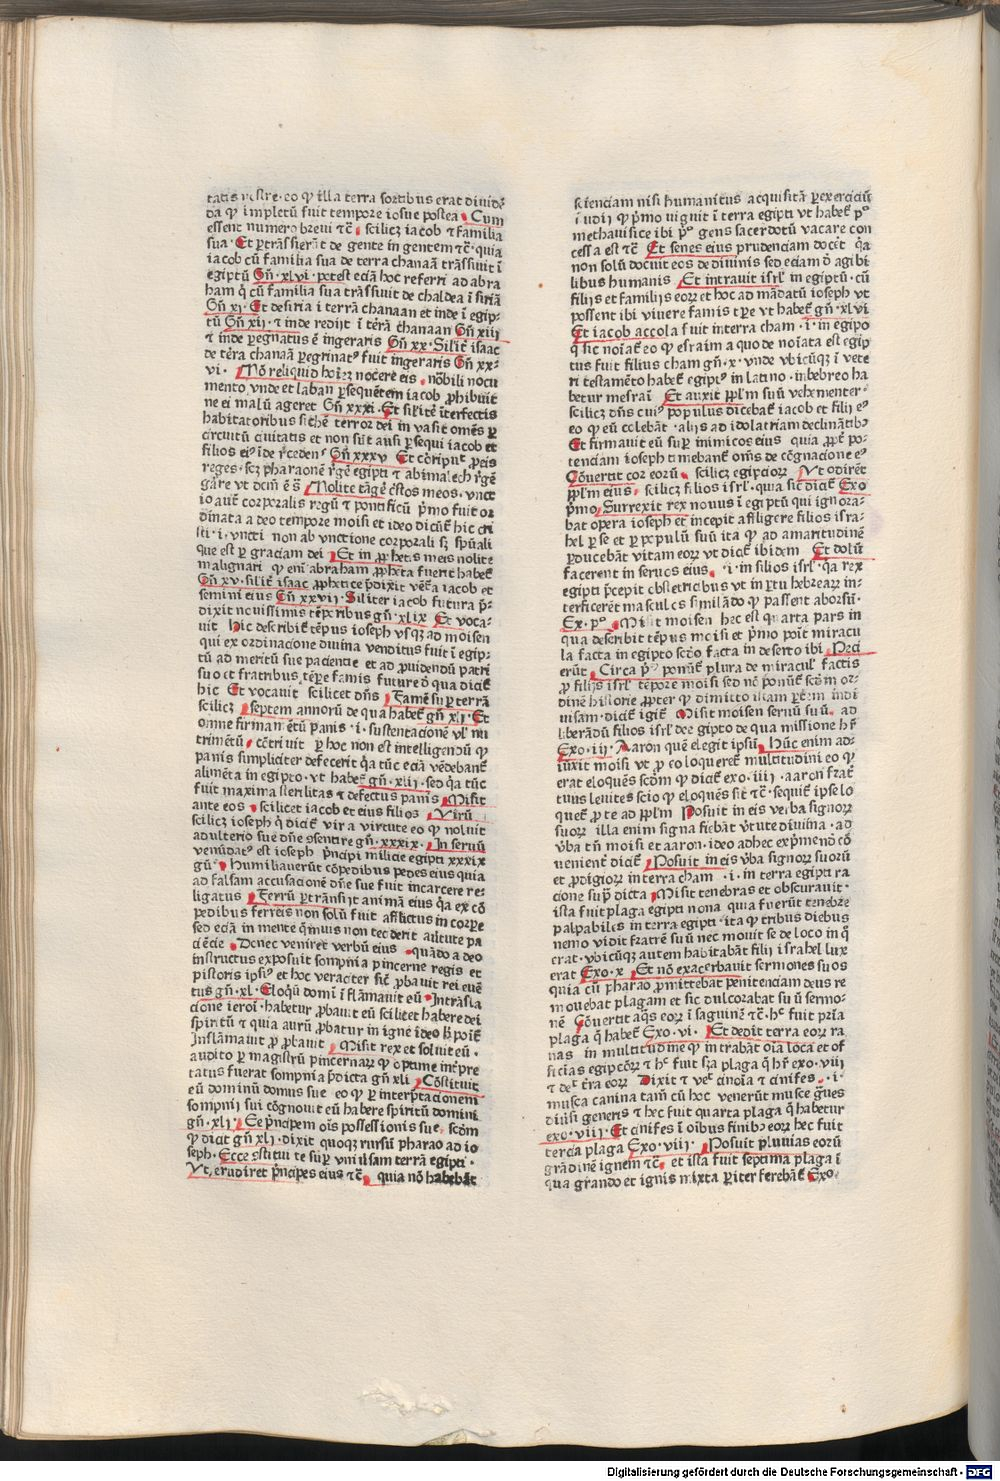 tatis vestre·eo ꝙ illa terra sortibus erat diuidē
da ꝙ impletū fuit tempore iosue postea Cum
essent numero breui ⁊c̄· scilicz iacob ⁊ familia
sua· Et ꝑtrāsierāt de gente in gentem ⁊c̄·quia
iacob cū familia sua de terra chanaā trāssiuit ī
egiptū Gn̄·xlvi·potest eciā hoc referri ad abra
ham q̄ cū familia sua trāssiuit de chaldea ī siriā
Gn̄ xi· Et de siria ī terrā chanaan et inde ī egip-
tū Gn̄ xii·⁊ inde redijt ī tērā chanaan Gn̄ xiii
⁊ inde ꝑegnatus ē in geraris Gn̄ xx·Silit̄ isaac
de tēra chanaā ꝑegrinatꝰ fuit in geraris Gn̄ xx-
vi· Nō reliquid hoīez nocere eis·nōbili nocu
mento vnde et laban ꝑsequētem iacob ꝓhibuit
ne ei malū ageret Gn̄ xxxi·Et silitē īterfectis
habitatoribus sichē terror dei in vasit omēs ꝑ
circuitū ciuitatis et non sūt ausi ꝑsequi iacob et
filios eiꝰ īde rc̄edenꝭ Gn̄ xxxv Et cōripuꝭ ꝓ eis
reges·scz pharaonē rḡē egipti ⁊ abimalech rḡē
gāre vt dcm̄ ē s̄ Nolite tāḡe cr̄stos meos·vnct
io aut̄ corporalis regū ⁊ pontificū pm̄o fuit or
dinata a deo tempore moisi et ideo dicūꝭ hic cri
sti·i·vncti non ab vnctione corporali sꝫ spūali
que est ꝑ graciam dei Et in ꝓphetis meis nolite
malignari ꝙ eni abraham ꝓphēta fuerit habeꝭ
Gn̄ xv·silit̄ isaac ꝓphetice p̄dixit vētā iacob et
semini eius Gn̄ xxvij Siliter iacob futura p̄-
dixit nouissimis tēporibus gn̄·xlix Et voca-
uit hic describiꝭ tēpus ioseph vsqꝫ ad moisen
qui ex ordinacione diuina venditus fuit ī egip-
tū ad meritū sue paciencie et ad ꝓuidendū patri
suo et fratribus tēpe famis future d̄ qua diciꝭ
hic Et vocauit scilicet dn̄s Famē suꝑ terrā
scilicz septem annorū de qua habeꝭ gn̄ xli Et
omne firmamētū panis·i·sustentacionē vl̄ nu
trimētū cōtriuit ꝑ hoc non est intelligendū ꝙ
panis simpliciter defecerit q̄a tūc eciā vēdebanꝭ
alimēta in egipto·vt habeꝭ gn̄·xlii·sed q̄a tūc
fuit maxima sterilitas ⁊ defectus panis Misit
ante eos scilicet iacob et eius filios Virū
scilicz ioseph q̄ diciꝭ vir a virtute eo ꝙ noluit
adulterio sue dn̄e ɔsentire gn̄·xxxix·In seruū
venūdatꝰ est ioseph pn̄cipi milicie egipti xxxix
gn̄ Humiliauerūt cōpedibus pedes eius quia
ad falsam accusacionē dn̄e sue fuit incarcere re-
ligatus Ferrū ꝑtransijt animā eius q̄a ex cō
pedibus ferreis non solū fuit afflictus in corpe
sed eciā in mente q̄muis non tecderit a v̄tute pa
ciēcie Donec veniret verbū eius quādo a deo
instructus exposuit sompnia pincerne regis et
pistoris ipsiꝰ et hoc veraciter sic̄ ꝓbauit rei euē
tus gn̄·xl·Eloqū domi īflāmauit eū Intrāsla
cione ieroī·habetur ꝓbauit eū scilicet habere dei
spiritū ⁊ quia aurū ꝓbatur in igne ideo hꝫ poīꝭ
Inflāmauit ꝓ ꝓbauit Misit rex et soluit eū·
audito ꝑ magistrū pincernaꝝ ꝙ optime intꝑre
tatus fuerat sompnia p̄dicta gn̄ xli Cōstituit
eū dominū domus sue eo ꝙ ꝑ interp̄tacionem
sompnij sui cōgnouit eū habere spiritū domini
gn̄·xli Et pn̄cipem ois possessionis sue scdm̄
ꝙ diciꝭ gn̄ xli·dixit quoqꝫ rursū pharao ad io
seph·Ecce ɔstitui te suꝑ vniuersam terrā egipti·
Vt erudiret pn̄cipes eius ⁊c̄ quia nō habebāt
scienciam nisi humanitus acquisitā ꝑ exerciciū
ī udij ꝙ pm̄o viguit ī terra egipti vt habeꝭ pº
methauisice ibi pº gens sacerdotū vacare con
cessa est ⁊c̄ Et senes eius prudenciam docēt q̄a
non solū docuit eos de diuinis sed eciam d̄ agibi
libus humanis Et intrauit isrl̄ in egiptū·cū
filijs et familijs eoꝝ et hoc ad mādatū ioseph vt
possent ibi viuere famis tꝑe vt habeꝭ gn̄ xlvi
Et iacob accola fuit interra cham·i·in egipo
q̄ sic noīaꝭ eo ꝙ esraim a quo denoīata est egip
tus fuit filius cham gn̄·x·vnde vbicūqꝫ ī vete
ri testamēto habeꝭ egiptꝰ in latino·in hebreo ha
betur mesraī Et auxit ꝓplm̄ suū vehementer·
scilicz dn̄s cuiꝰ populus dicebaꝭ iacob et filij eꝰ
eo ꝙ eū colebāt·alijs ad idolatriam declinātibꝫ
Et firmauit eū suꝑ inimicos eius quia ꝓpt̄ po-
tenciam ioseph timebanꝭ om̄s de cōgnacione eꝰ
Cōuertit cor eorū scilicz egipcioꝝ Vt odirēt
ꝓplm̄ eius scilicz filios isrl̄·qua sic̄ diciꝭ Exo
pm̄o Surrexit rex nouus ī egiptū qui ignora-
bat opera ioseph et incepit affligere filios isra-
hel ꝑ se et ꝑ populū suū ita ꝙ ad amaritudinē
ꝑducebāt vitam eoꝝ vt diciꝭ ibidem Et dolū
facerent in seruos eius·i·in filios isrl̄·q̄a rex
egipti p̄cepit obstetricibus vt in ꝑtu hebreaꝝ in-
terficerēt masculos similādo ꝙ passent aborsū·
Ex·pº Misit moisen hec est quarta pars in
qua describit tēpus moisi et pm̄o poīt miracu
la facta in egipto scd̄o facta in deserto ibi Peci
erūt Circa p̄º ponūꝭ plura de miracul̄ factis
ꝓ filijs isrl̄ tēpore moisi sed nō ponūꝭ scdm̄ or-
dinē historie ꝓpter ꝙ dimitto istam ꝑtem indi
uisam·diciꝭ igiꝭ Misit moisen seruū suū ad
liberādū filios isrl̄ de egipto de qua missione hr̄
Exo·iij· Aaron quē elegit ipsū Hūc enim ad-
iuxit moisi vt ꝓ eo loqueretꝭ multitudini eo ꝙ
erat eloquēs scdm̄ ꝙ diciꝭ exo·iiii·aaron frat̄
tuus leuites scio ꝙ eloquēs sit ⁊c̄·sequiꝭ ipse lo
queꝭ ꝓ te ad ꝓplm̄ Posuit in eis verba signoꝝ
suoꝝ illa enim signa fiebāt v̄tute diuina·ad
v̄ba tn̄ moisi et aaron·ideo ad hec exp̄mendū cō
uenient̄ diciꝭ Posuit in eis v̄ba signorū suorū
et ꝓdigioꝝ in terra cham·i·in terra egipti ra
cione sup̄dicta Misit tenebras et obscurauit·
ista fuit plaga egipti nona qua fuerūt tenebre
palpabiles in terra egipti·ita ꝙ tribus diebus
nemo vidit fratrē suū nec mouit se de loco in q̄
erat·vbicūqꝫ autem habitabāt filij israhel lux
erat Exo·x Et nō exacerbauit sermones suos
quia cū pharao ꝓmittebat penitenciam deus re
mouebat plagam et sic dulcorabat suū sermo-
nē Cōuertit aq̄s eoꝝ ī saguinē ⁊c̄·hc̄ fuit pr̄ia
plaga q̄ habeꝭ Exo·vi· Et dedit terra eorꝝ ra
nas in multitudine ꝙ intrabāt oīa loca et of
ficias egipcōꝝ ⁊ hᵉ fuit scd̄a plaga q̄ hr̄ exo·vii
⁊ deᵗ tr̄a eoꝝ Dixit ⁊ veᵗ cinoīa ⁊ cinifes·i·
musca canina tam̄ cū hoc venerūt musce gn̄es
diūsi generis ⁊ hec fuit quarta plaga q̄ habetur
exo·viii·Et cinifes ī oībus finibꝫ eoꝝ hec fuit
tercia plaga Exo·viii· Posuit pluuias eorū
grādinē ignem ⁊c̄ et ista fuit septima plaga ī
qua grando et ignis mixta ꝑiter ferebāꝭ Exo·
Digitalisierung gefördert durch die Deutsche Forschungsgemeinschaft - DFG